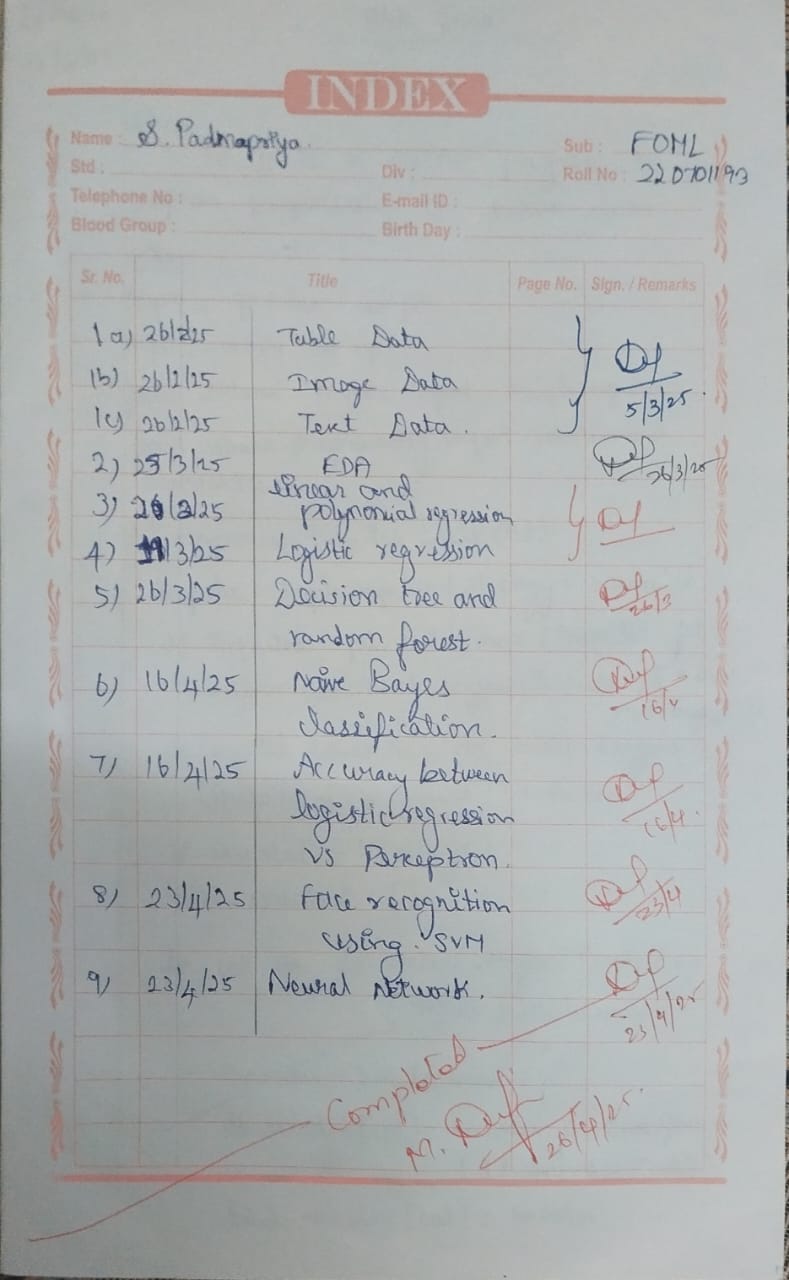 INDEX
Name : S. Padmapriya. Sub : FOML
Std : Div : Roll No : 220701193
Telephone No : E-mail ID :
Blood Group : Birth Day :
Sr. No. Title Page No. Sign. / Remarks
1a) 26/2/25 Table Data
1b) 26/2/25 Image Data
1c) 26/2/25 Text Data.
5/3/25.
2) 25/3/25 EDA 26/3/25
linear and
3) 26/3/25 polynomial regression
4) 19/3/25 Logistic regression
5) 26/3/25 Decision tree and 26/3
random forest.
6) 16/4/25 Naive Bayes 16/4
classification.
7) 16/4/25 Accuracy between
logistic regression 16/4.
vs Perceptron.
8) 23/4/25 face recognition 23/4
using SVM
9) 23/4/25 Neural Network.
23/4/25
Completed
M. 26/4/25.